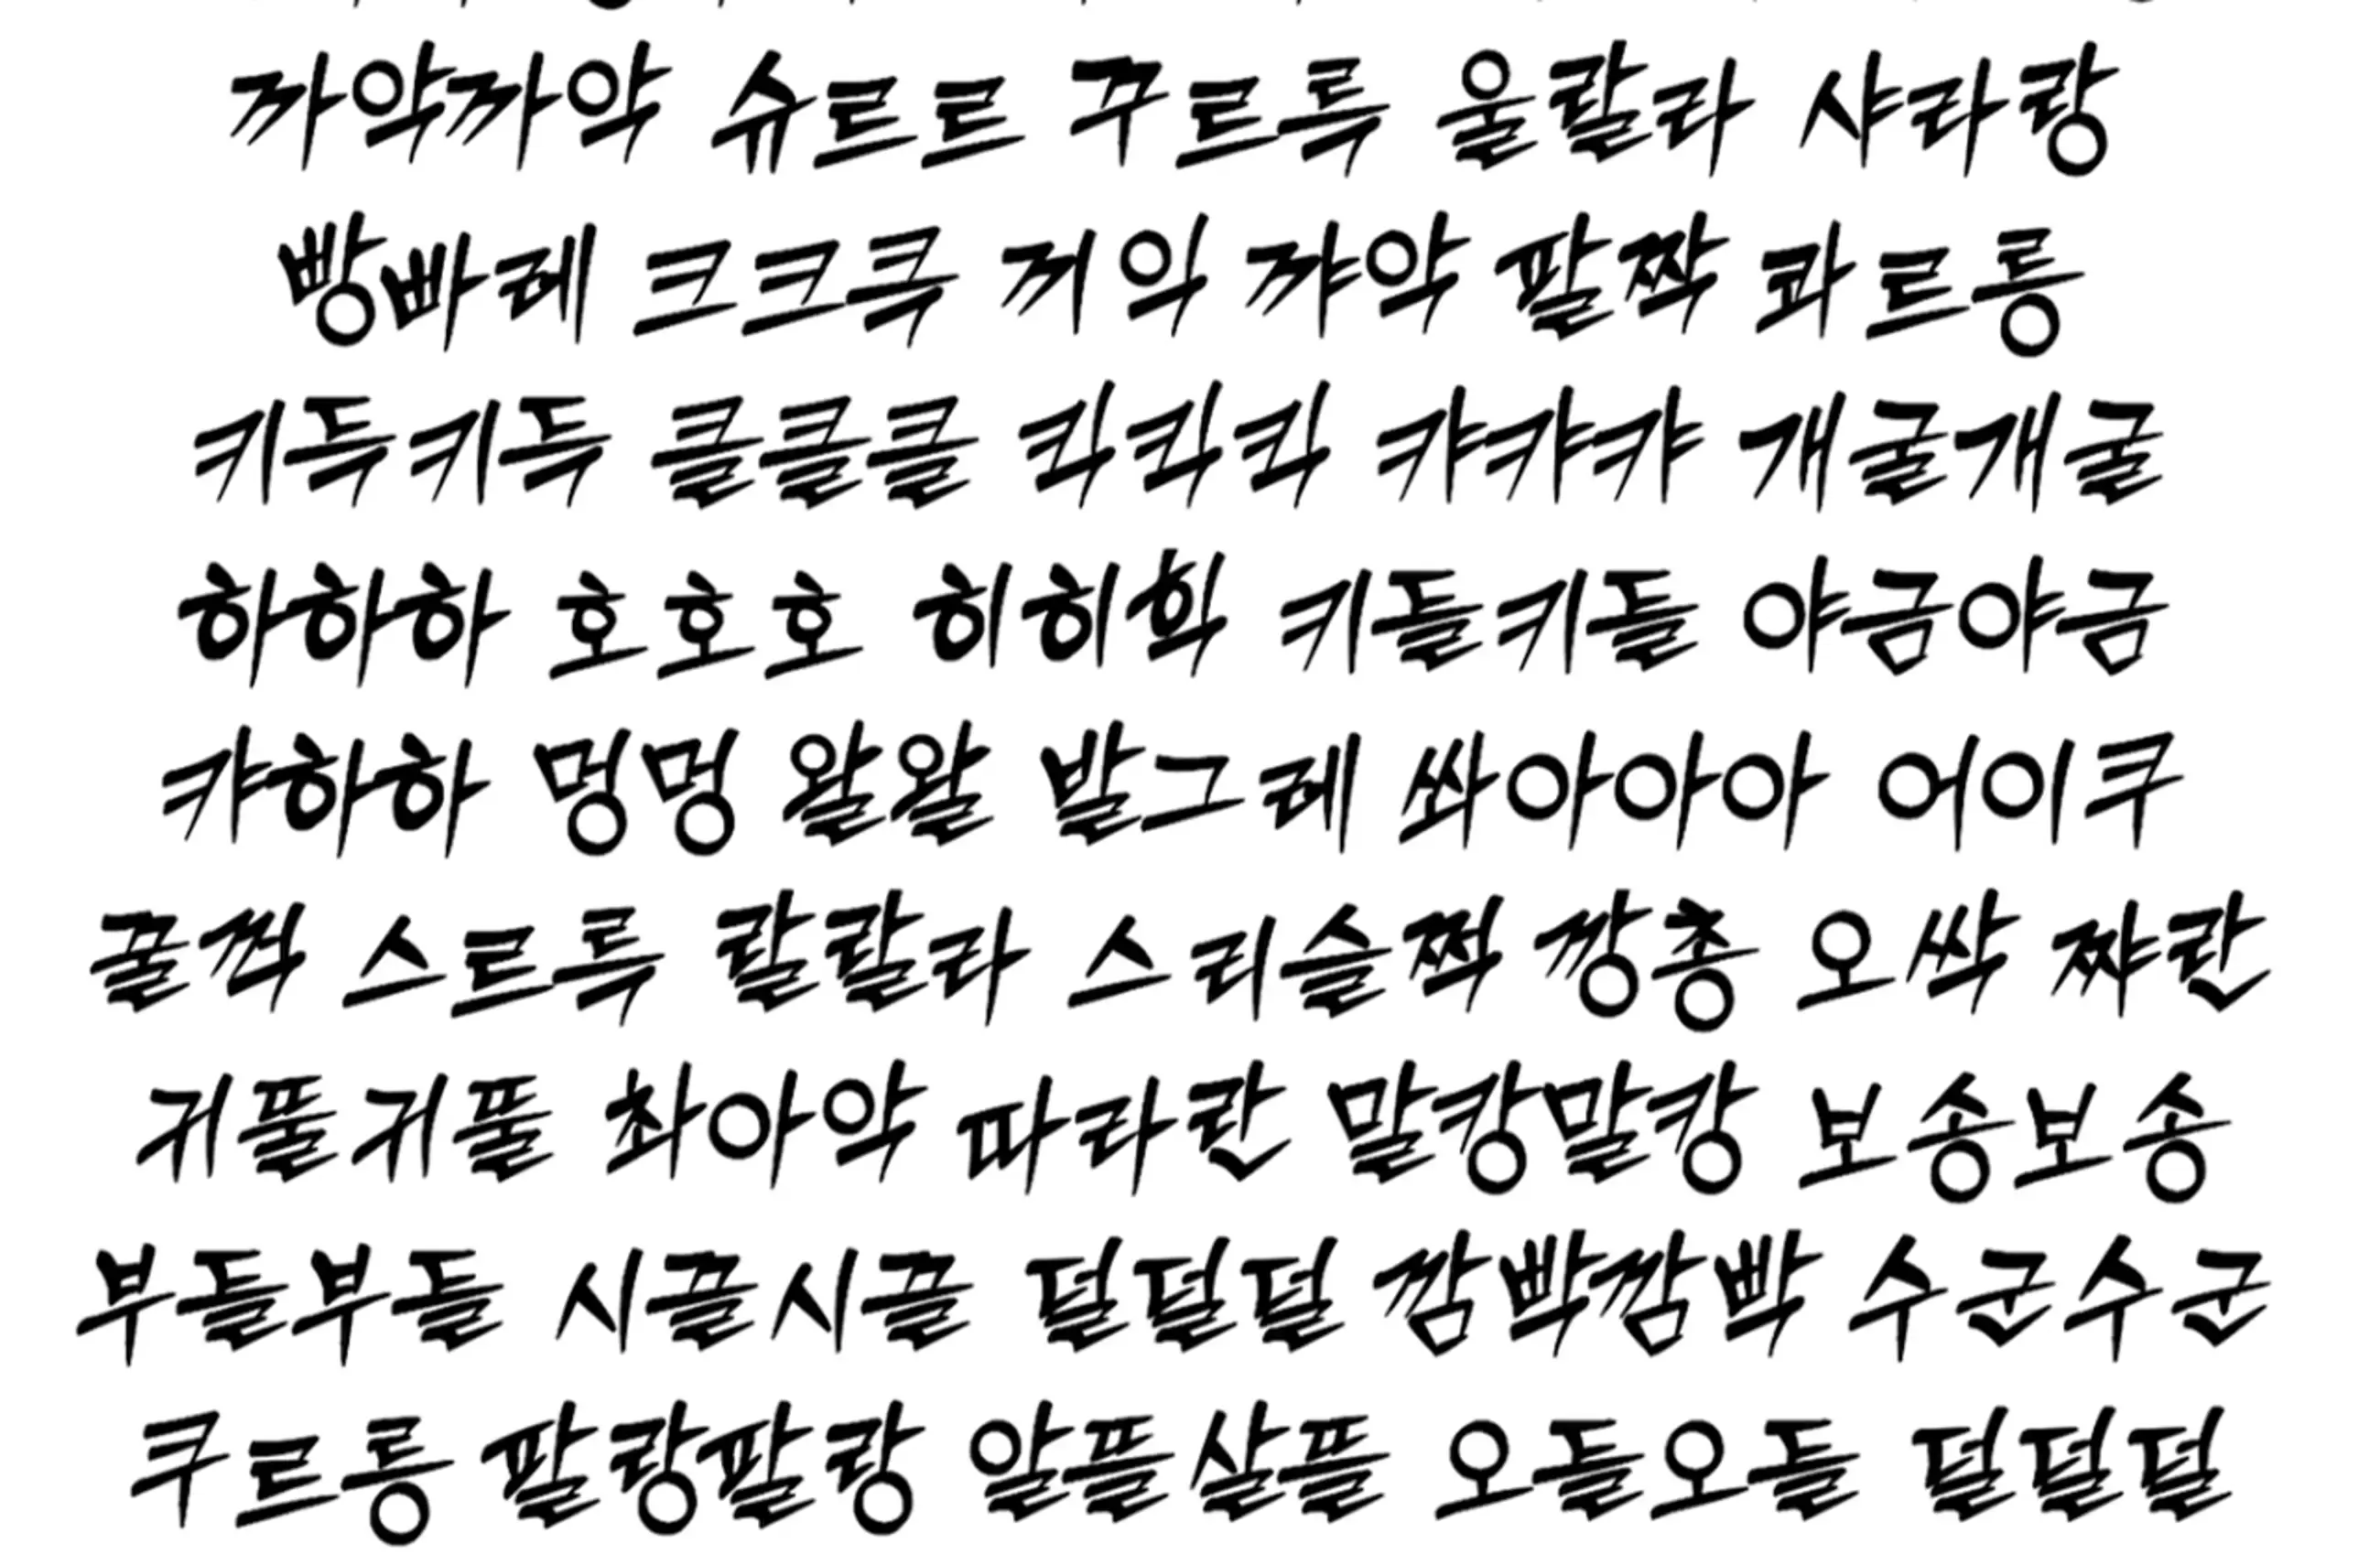 까악까악 슈르르 꾸르륵 울랄라 샤라랑
빵빠레 크크큭 끼익 꺄악 팔짝 콰르릉
키득키득 클클클 킥킥킥 캬캬캬 개굴개굴
하하하 호호호 히히힉 키들키들 야금야금
캬하하 멍멍 왈왈 발그레 쏴아아아 어이쿠
꿀꺽 스르륵 랄랄라 스리슬쩍 깡총 오싹 쨔란
귀뚤귀뚤 촤아악 따라란 말캉말캉 보송보송
부들부들 시끌시끌 덜덜덜 깜빡깜빡 수군수군
쿠르릉 팔랑팔랑 알뜰살뜰 오들오들 덜덜덜